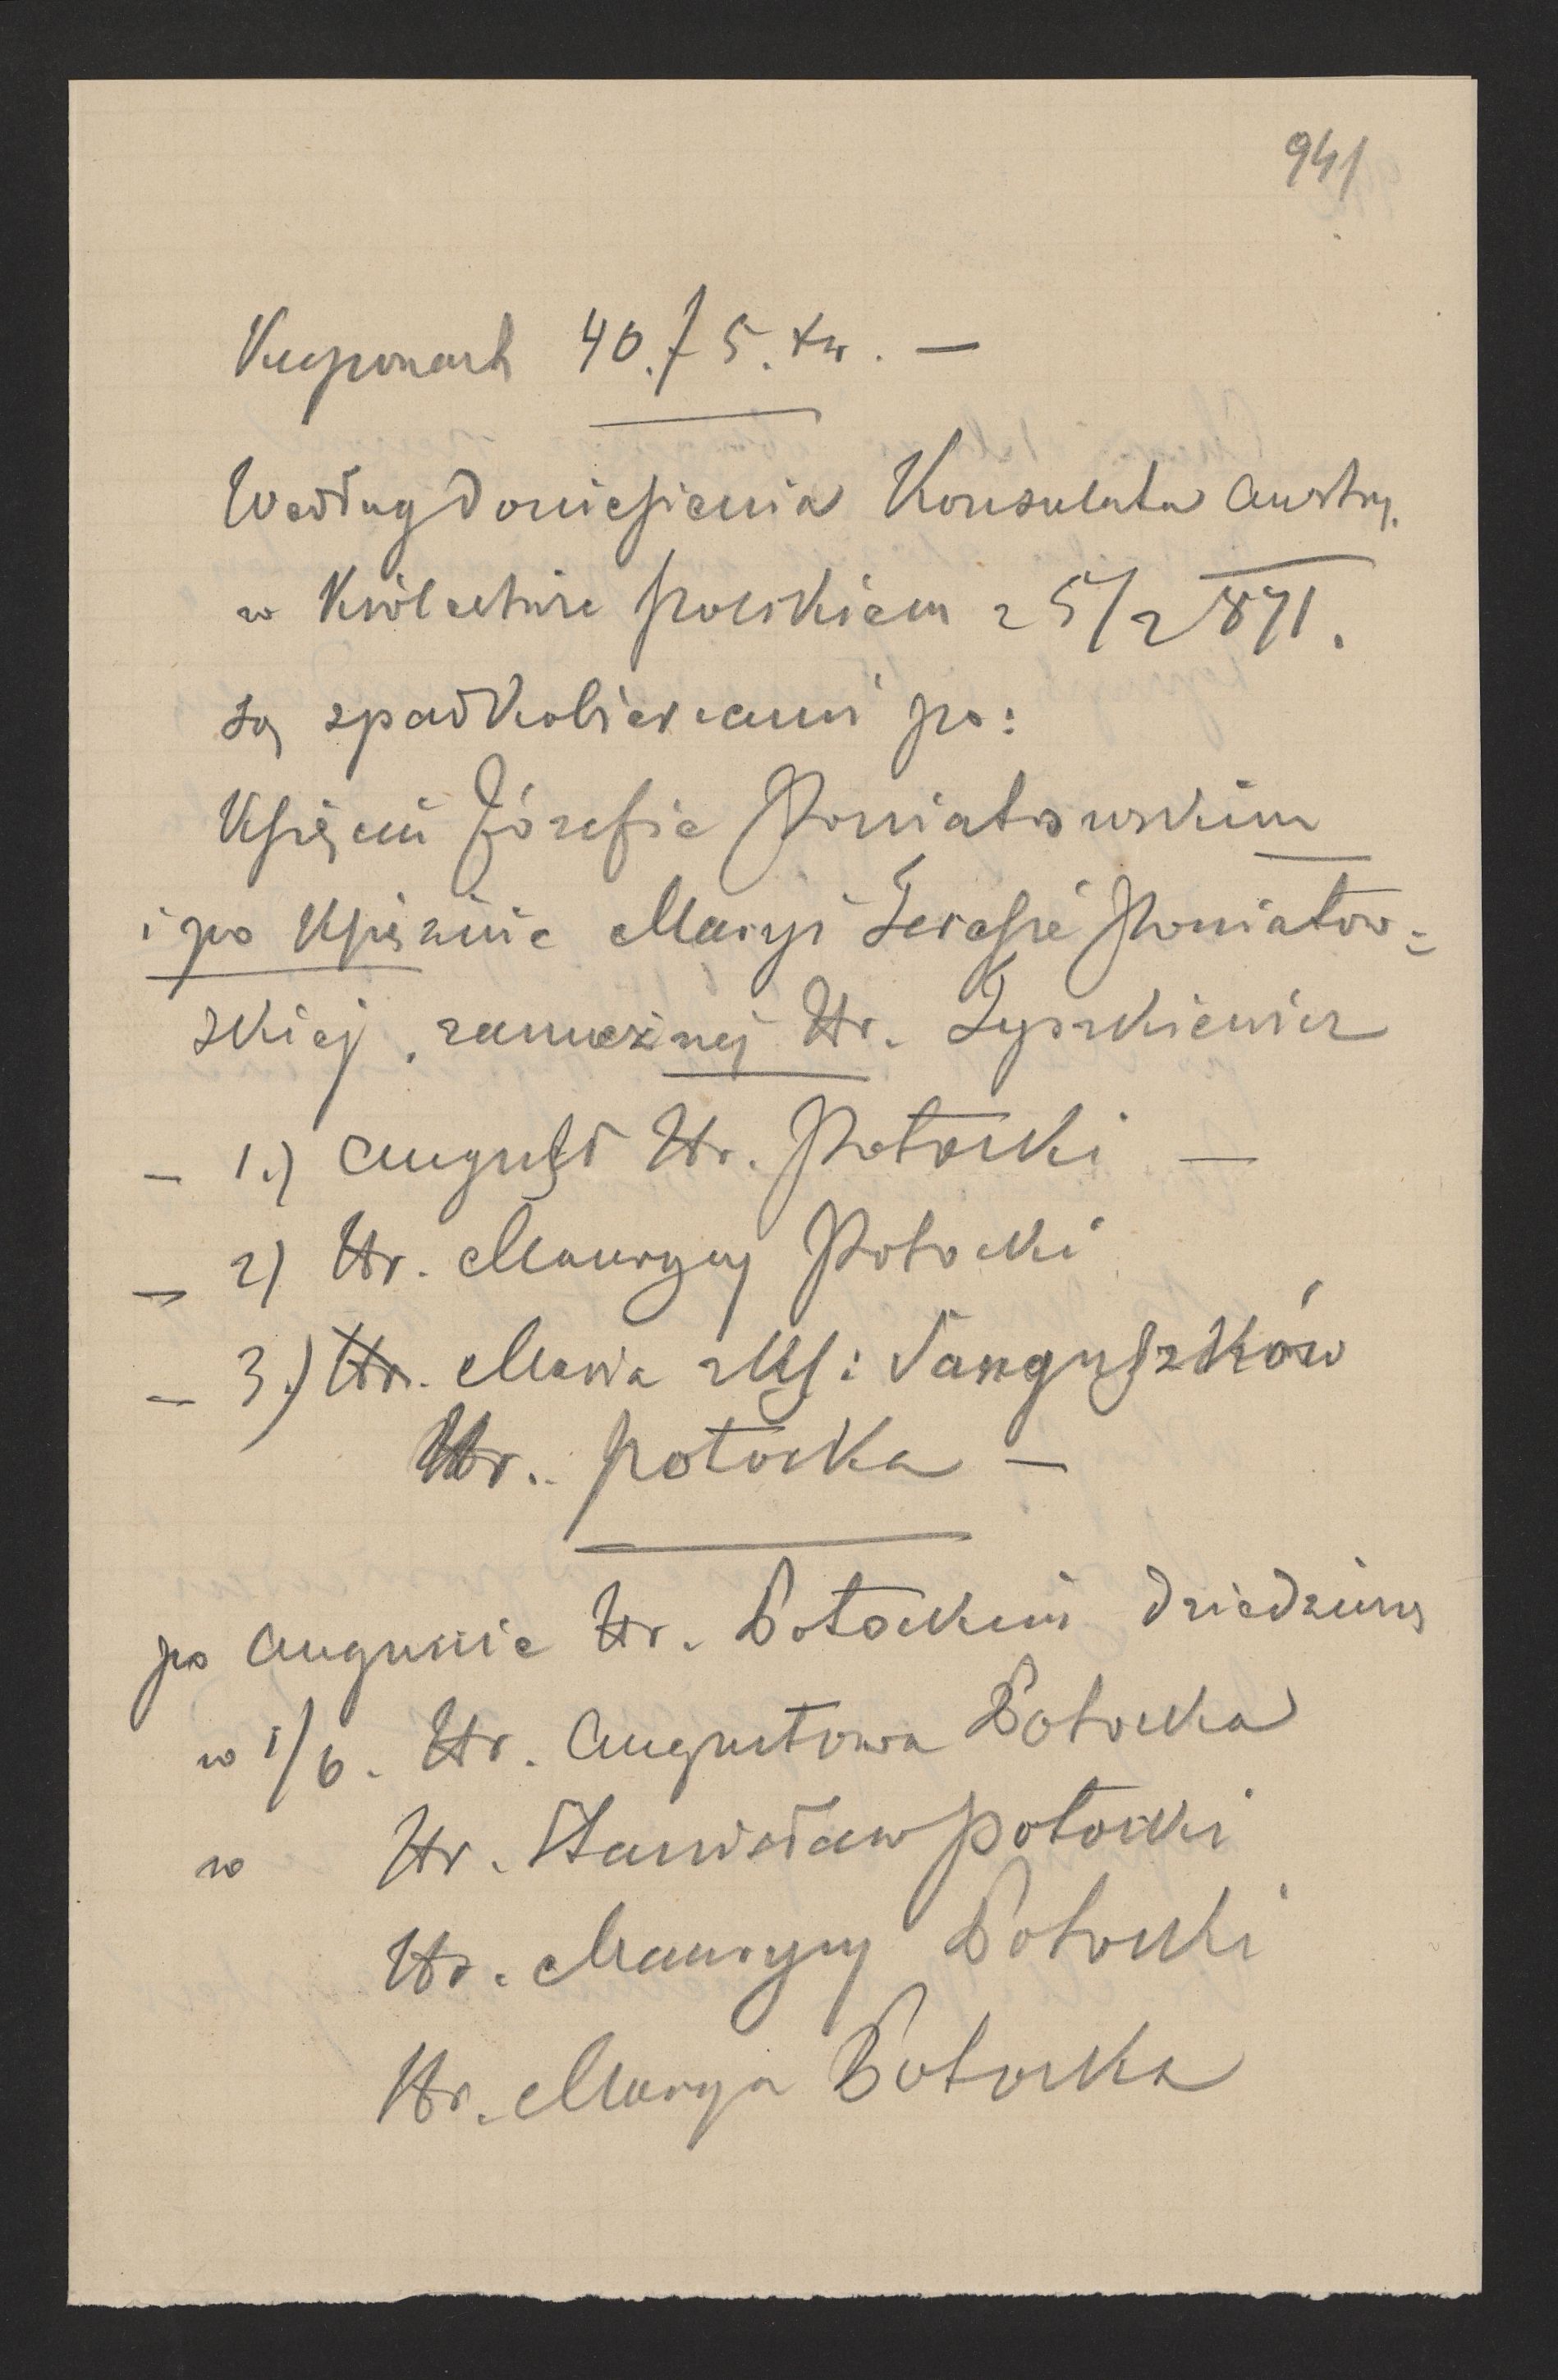 941
Kuponach 40. f 5. kr. —
Według doniesienia Konsulatu Austry.
w Królestwie Polskiem 25/2 871.
są spadkobiercami po:
Księciu Józefie Poniatowskim
i po Księżnie Maryi Teresie Poniatow=
skiej, zamężnej Hr. Tyszkiewicz
— 1.) August Hr. Potocki —
— 2) Hr. Maurycy Potocki
— 3.) Hr. Maria z Ks: Sanguszków
Hr. Potocka —
po Auguście Hr. Potockim dziedziczą
w 1/6. Hr. Augustowa Potocka
w Hr. Stanisław Potocki
Hr. Maurycy Potocki
Hr. Marya Potocka